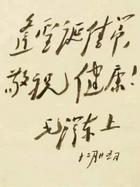 逢圣诞佳节
敬祝健康!
毛泽东上
十二月廿五日